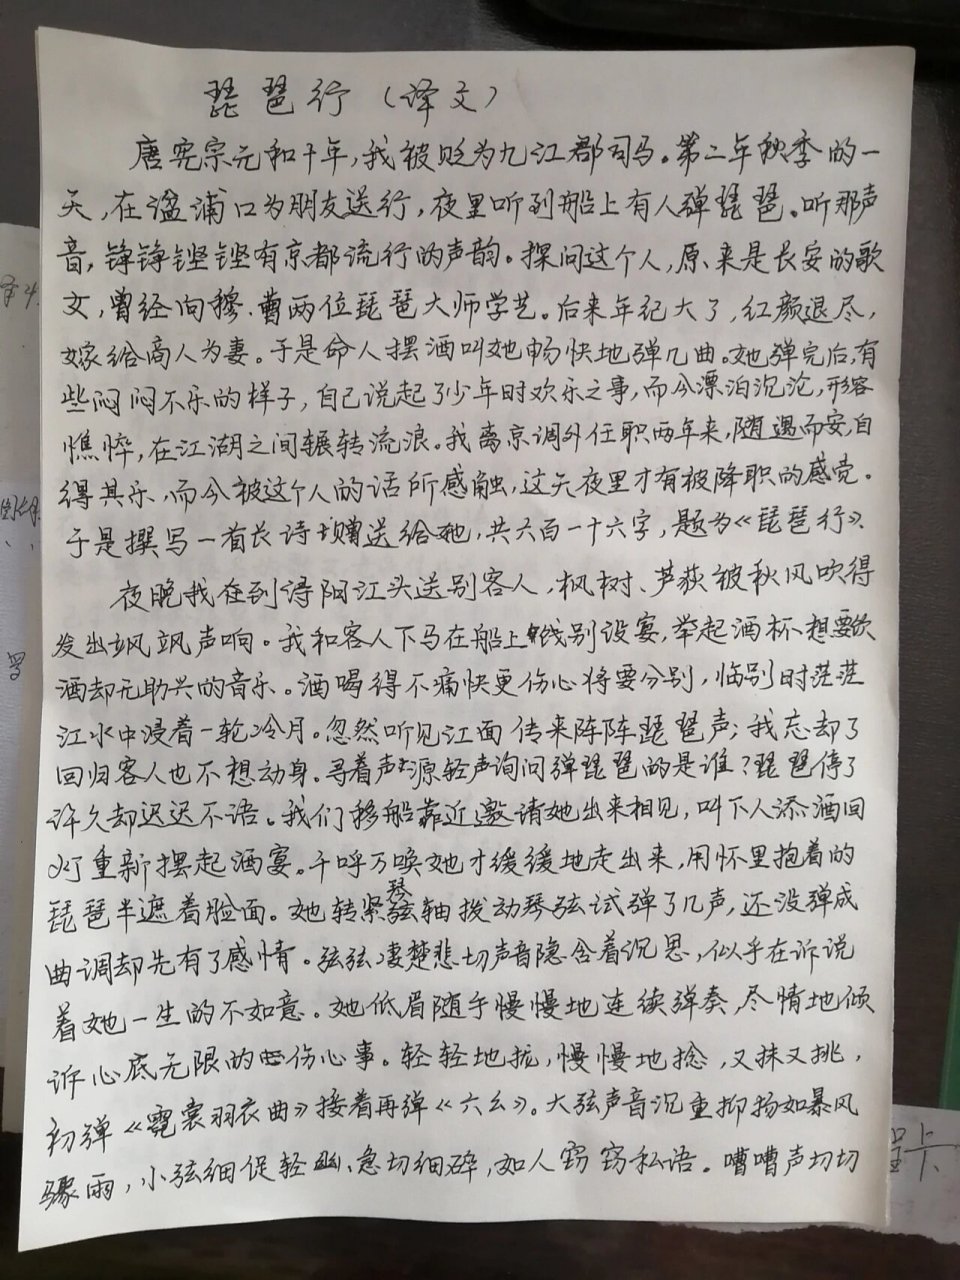 琵琶行（译文）
唐宪宗元和十年，我被贬为九江郡司马。第二年秋季的一
天，在湓浦口为朋友送行，夜里听到船上有人弹琵琶。听那声
音，铮铮铿铿有京都流行的声韵。探问这个人，原来是长安的歌
女，曾经向穆、曹两位琵琶大师学艺。后来年纪大了，红颜退尽，
嫁给商人为妻。于是命人摆酒叫她畅快地弹几曲。她弹完后，有
些闷闷不乐的样子，自己说起了少年时欢乐之事，而今漂泊沉沦，形容
憔悴，在江湖之间辗转流浪。我离京调外任职两年来，随遇而安，自
得其乐，而今被这个人的话所感触，这天夜里才有被降职的感觉。
于是撰写一首长诗赠送给她，共六百一十六字，题为《琵琶行》、
夜晚我在到浔阳江头送别客人，枫树、芦荻被秋风吹得
发出飒飒声响。我和客人下马在船上饯别设宴，举起酒杯想要饮
酒却无助兴的音乐。酒喝得不痛快更伤心将要分别，临别时茫茫
江水中浸着一轮冷月。忽然听见江面传来阵阵琵琶声；我忘却了
回归客人也不想动身。寻着声源轻声询问弹琵琶的是谁？琵琶停了
许久却迟迟不语。我们移船靠近邀请她出来相见，叫下人添酒回
灯重新摆起酒宴。千呼万唤她才缓缓地走出来，用怀里抱着的
琵琶半遮着脸面。她转紧琴弦轴拨动琴弦试弹了几声，还没弹成
曲调却先有了感情。弦弦凄楚悲切声音隐含着沉思，似乎在诉说
着她一生的不如意。她低眉随手慢慢地连续弹奏，尽情地倾
诉心底无限的伤心事。轻轻地拢，慢慢地捻，又抹又挑，
初弹《霓裳羽衣曲》接着再弹《六幺》。大弦声音沉重抑扬如暴风
骤雨，小弦细促轻幽、急切细碎，如人窃窃私语。嘈嘈声切切